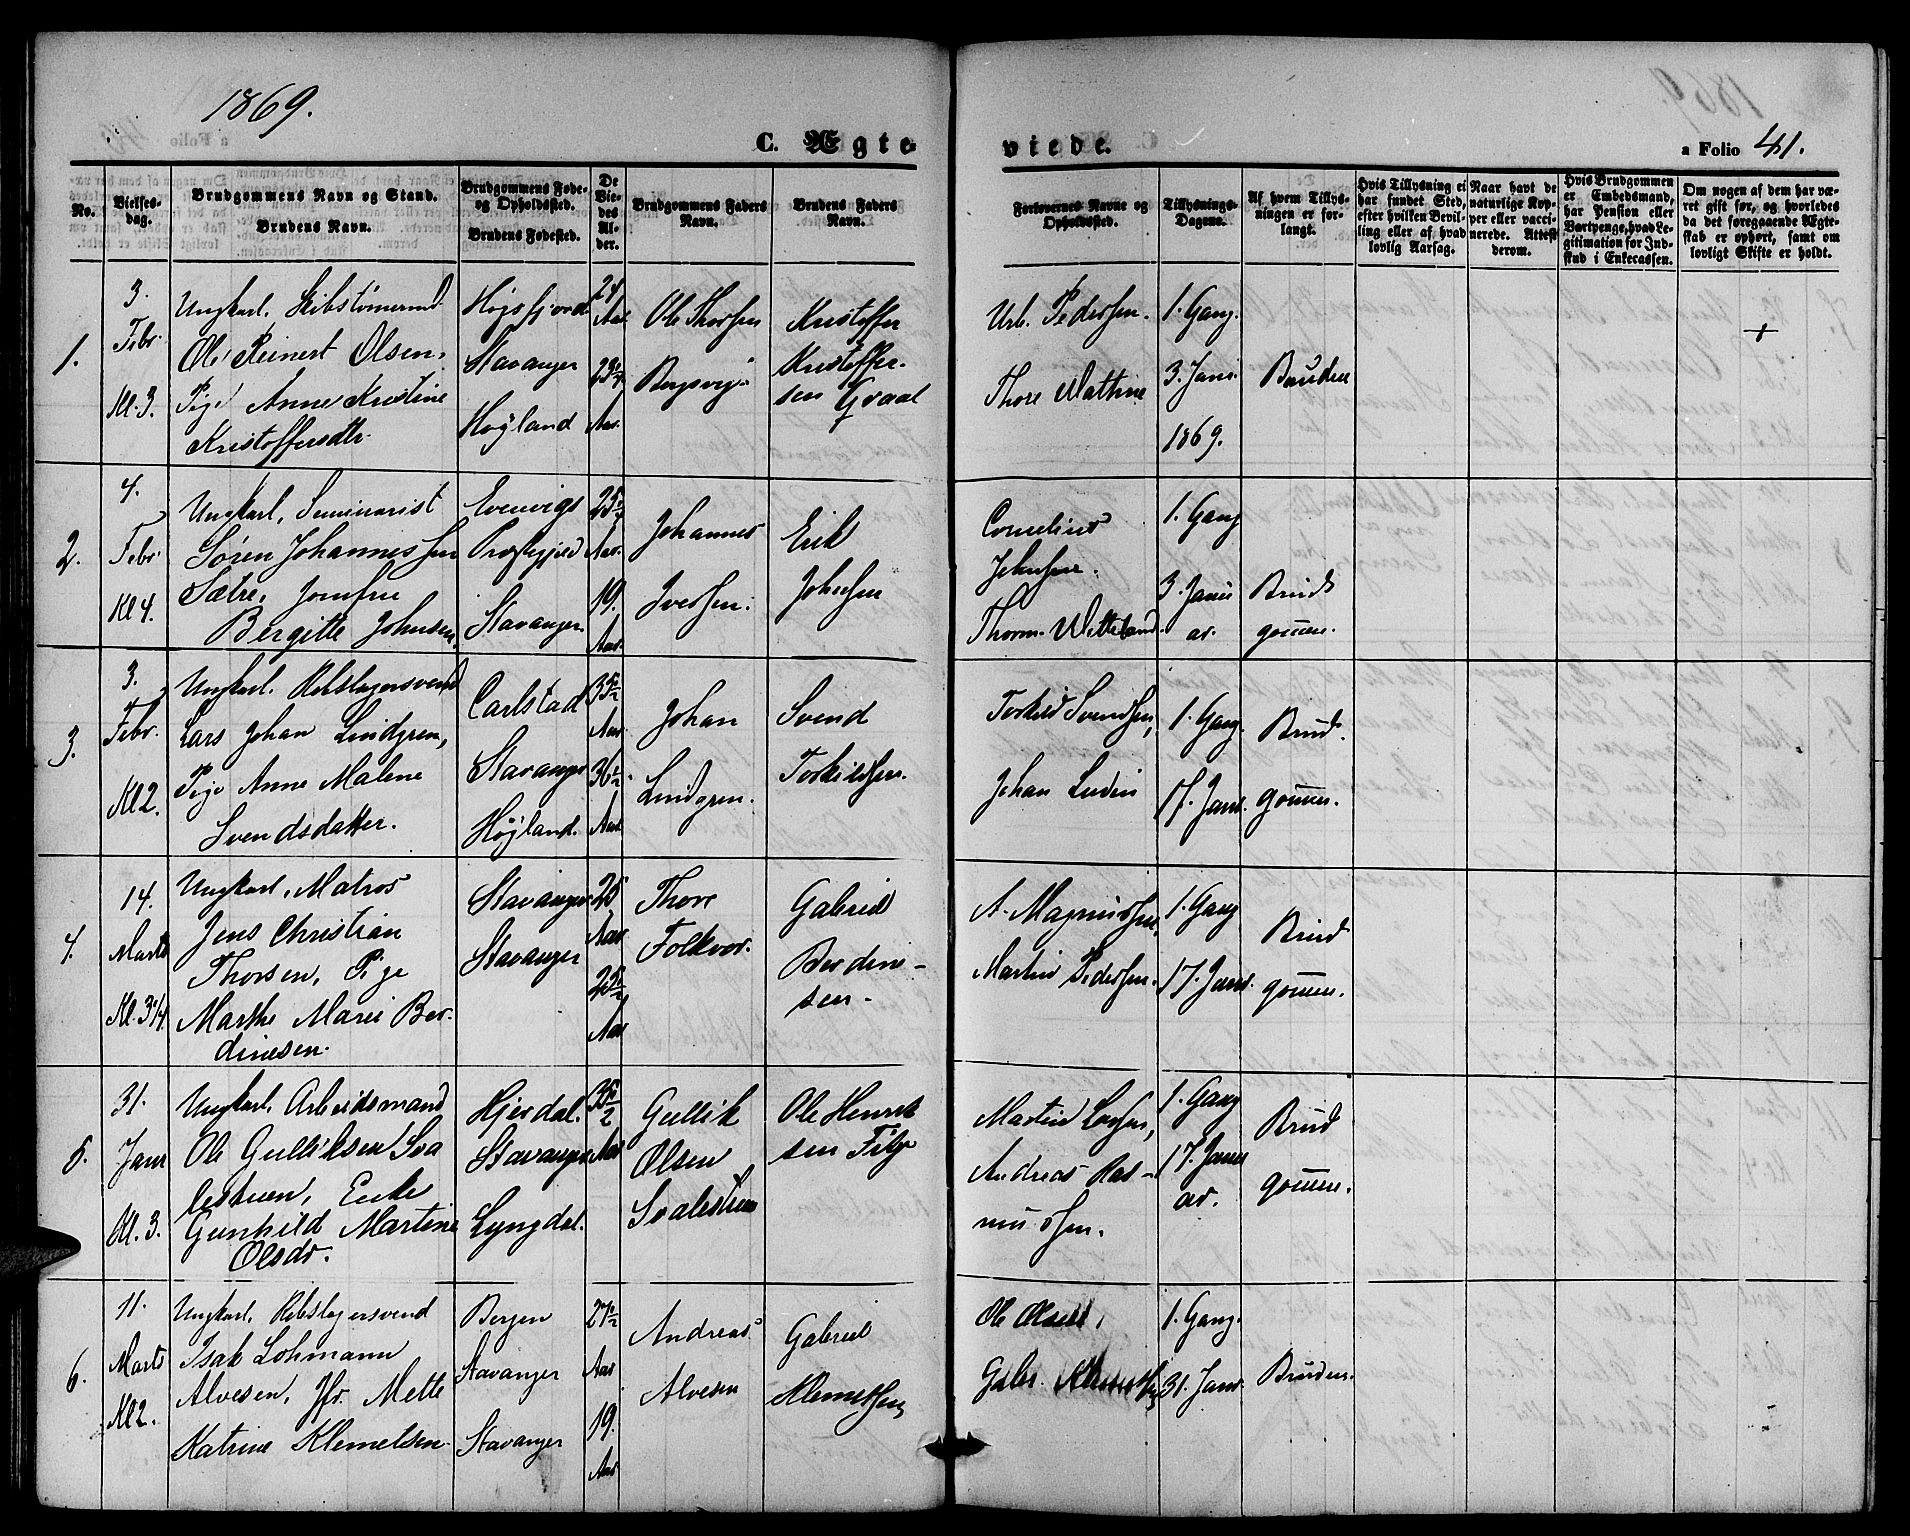 1869.
C. Ægte
viede.
a Folio 41.
No.
Vielses-
dag.
Brudgommens Navn og Stand.
Brudens Navn.
Brudgommens Føde-
og Opholdssted.
Brudens Fødested.
De
Vie-
des
Al-
der.
Brudgommens Faders
Navn.
Brudens Faders
Navn.
Forlovernes Navne og
Opholdssted.
Tillysnings-
Dagene.
Af hvem Tillys-
ningen er for-
langt.
Hvis Tillysning ei
har fundet Sted,
efter hvilken Bevil-
ling eller af hvad
lovlig Aarsag.
Naar havt de
naturlige Kop-
per eller vacci-
nerede. Attest
derom.
Hvis Brudgommen
er Embedsmand,
har Pension eller
Vartpenge, hvad Le-
gitimation for Ind-
skud i Enkecassen.
Om nogen af dem har væ-
ret gift før, og hvorledes
da det foregaaende Ægte-
skab er ophørt, samt om
lovligt Skifte er holdt.
1.
3.
Febr.
Kl. 3.
Ungkarl. Skibstømermd
Ole Reinert Olsen.
Pige Anne Kristine
Kristoffersdtr.
Høgsfjord
Stavanger
Høyland
24
Aar
23 1/4
Aar.
Ole Thorsen
Bergsvig
Kristoffer
Kristoffer-
sen Graal
Urb. Pedersen.
Thore Mathine
1. Gang.
3. Jan.
1869.
Bruden
+
2.
4.
Febr
Kl 4.
Ungkarl, Seminarist
Søren Johannessen
Sætre, Jomfru
Bergitte Johnsen
Evenvigs
Præstegjeld
Stavanger.
25 1/4
Aar.
19.
Aar.
Johannes
Iversen.
Erik
Johnsen
Cornelius
Johnsen.
Thorm. Witteland.
1. Gang
3. Janu
ar.
Brud
gommen.
3.
3.
Febr.
Kl 2.
Ungkarl. Rebslagersvend
Lars Johan Lindgren,
Pige Anne Malene
Svendsdatter.
Carlstad
Stavanger
Høyland.
35 1/2
Aar.
36 1/2
Aar
Johan
Lindgren.
Svend
Torkildsen.
Torkild Svendsen,
Johan Ludin
1. Gang.
17. Janr.
Brud.
gommen.
4.
14.
Marts
Kl. 3 1/4
Ungkarl, Matros
Jens Christian
Thorsen, Pige
Marthe Marie Ber-
dinesen.
Stavanger
Stavanger
25
Aar
25 1/2
Aar
Thore
Folkvor.
Gabriel
Berdine-
sen-
A. Magnussen,
Martin Pedersen.
1. Gang
17. Janr.
Brud
gommen.
5.
31.
Janr
Kl. 3.
Ungkarl, Arbeidsmand
Ole Gulliksen Sva
lestuen, Enke
Gunhild Martine
Olsdr.
Hjerdal.
Stavanger
Lyngdal.
35 1/2
Aar
Gullik
Olsen
Svalestuen
Ole Henrik
sen
Martin Larsen,
Andreas Ras-
mussen.
1. Gang
17. Janu
ar.
Brud
gommen.
6.
11.
Marts
Kl 2.
Ungkarl, Rebslagersvend
Isak Lohmann
Alvesen, Jfr. Mette
Katrine Klemetsen
Bergen
Stavanger
Stavanger
27 1/2
Aar
19.
Aar
Andreas
Alvesen
Gabriel
Klemetsen
Ole Olsen,
Gabr. Klemetsen
1. Gang.
31. Janr.
Bruden.